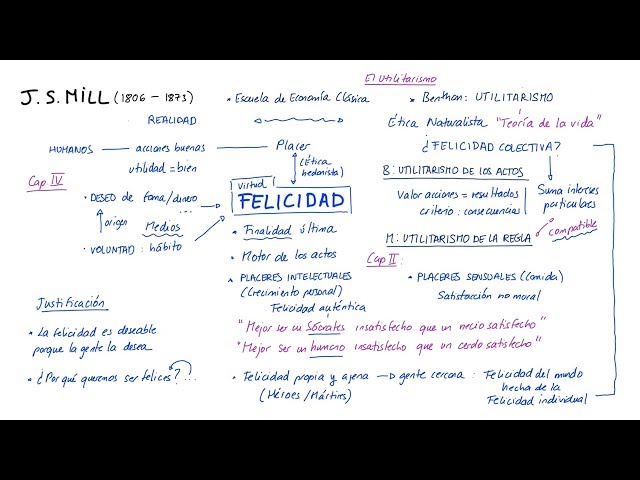 El utilitarismo
J. S. MILL (1806 - 1873)
• Escuela de Economía Clásica
• Benthan: UTILITARISMO
REALIDAD
Ética Naturalista "Teoría de la vida"
HUMANOS
acciones buenas
Placer
¿FELICIDAD COLECTIVA?
utilidad = bien
(Ética
hedonista)
B: UTILITARISMO DE LOS ACTOS
Cap IV
virtud
FELICIDAD
• DESEO de fama/dinero
Valor acciones = resultados
criterio: consecuencias
Suma intereses
particulares
origen
Medios
• Finalidad última
• VOLUNTAD: hábito
M: UTILITARISMO DE LA REGLA
compatible
• Motor de los actos
Cap II:
• PLACERES INTELECTUALES
(Crecimiento personal)
Felicidad auténtica
• PLACERES SENSUALES (Comida)
Satisfacción no moral
Justificación
• La felicidad es deseable
porque la gente la desea
"Mejor ser un Sócrates insatisfecho que un necio satisfecho"
"Mejor ser un humano insatisfecho que un cerdo satisfecho"
• ¿Por qué queremos ser felices? ...
• Felicidad propia y ajena → gente cercana: Felicidad del mundo
(Héroes/Mártires)
hecha de la
Felicidad individual